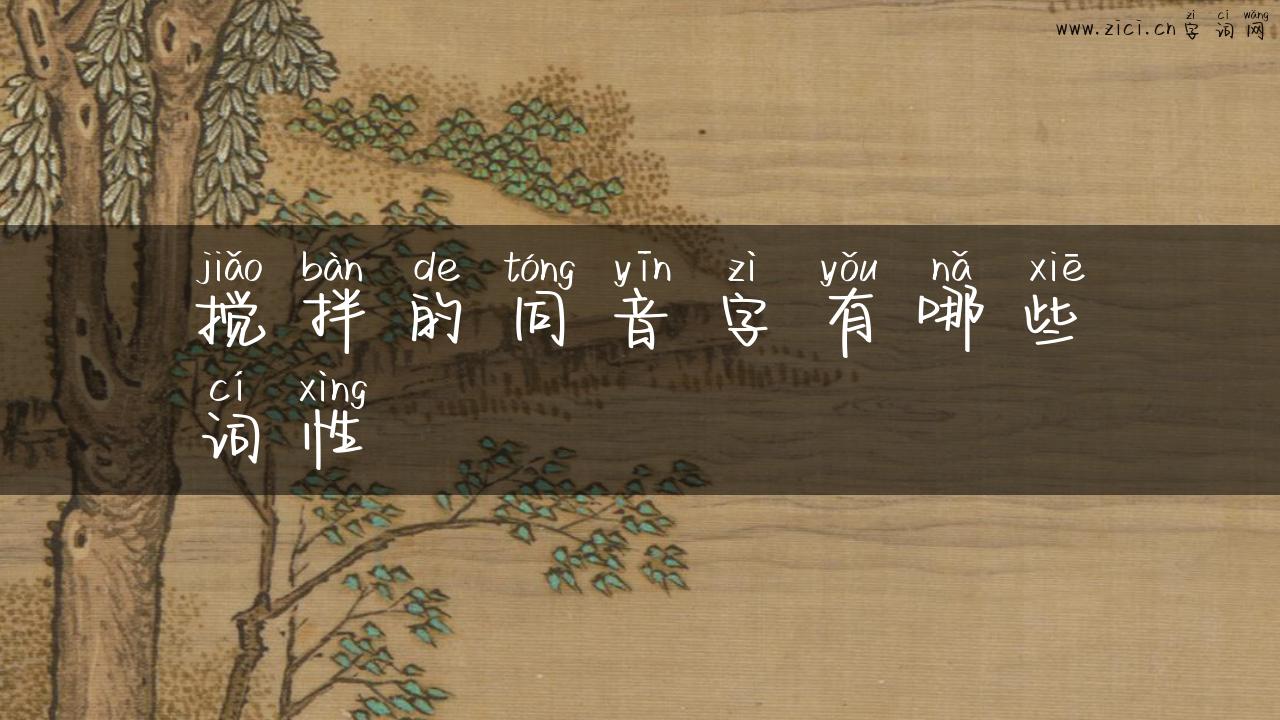 zì cí wǎng
www.zici.cn 字词网
jiǎo bàn de tóng yīn zì yǒu nǎ xiē
搅拌的同音字有哪些
cí xìng
词性